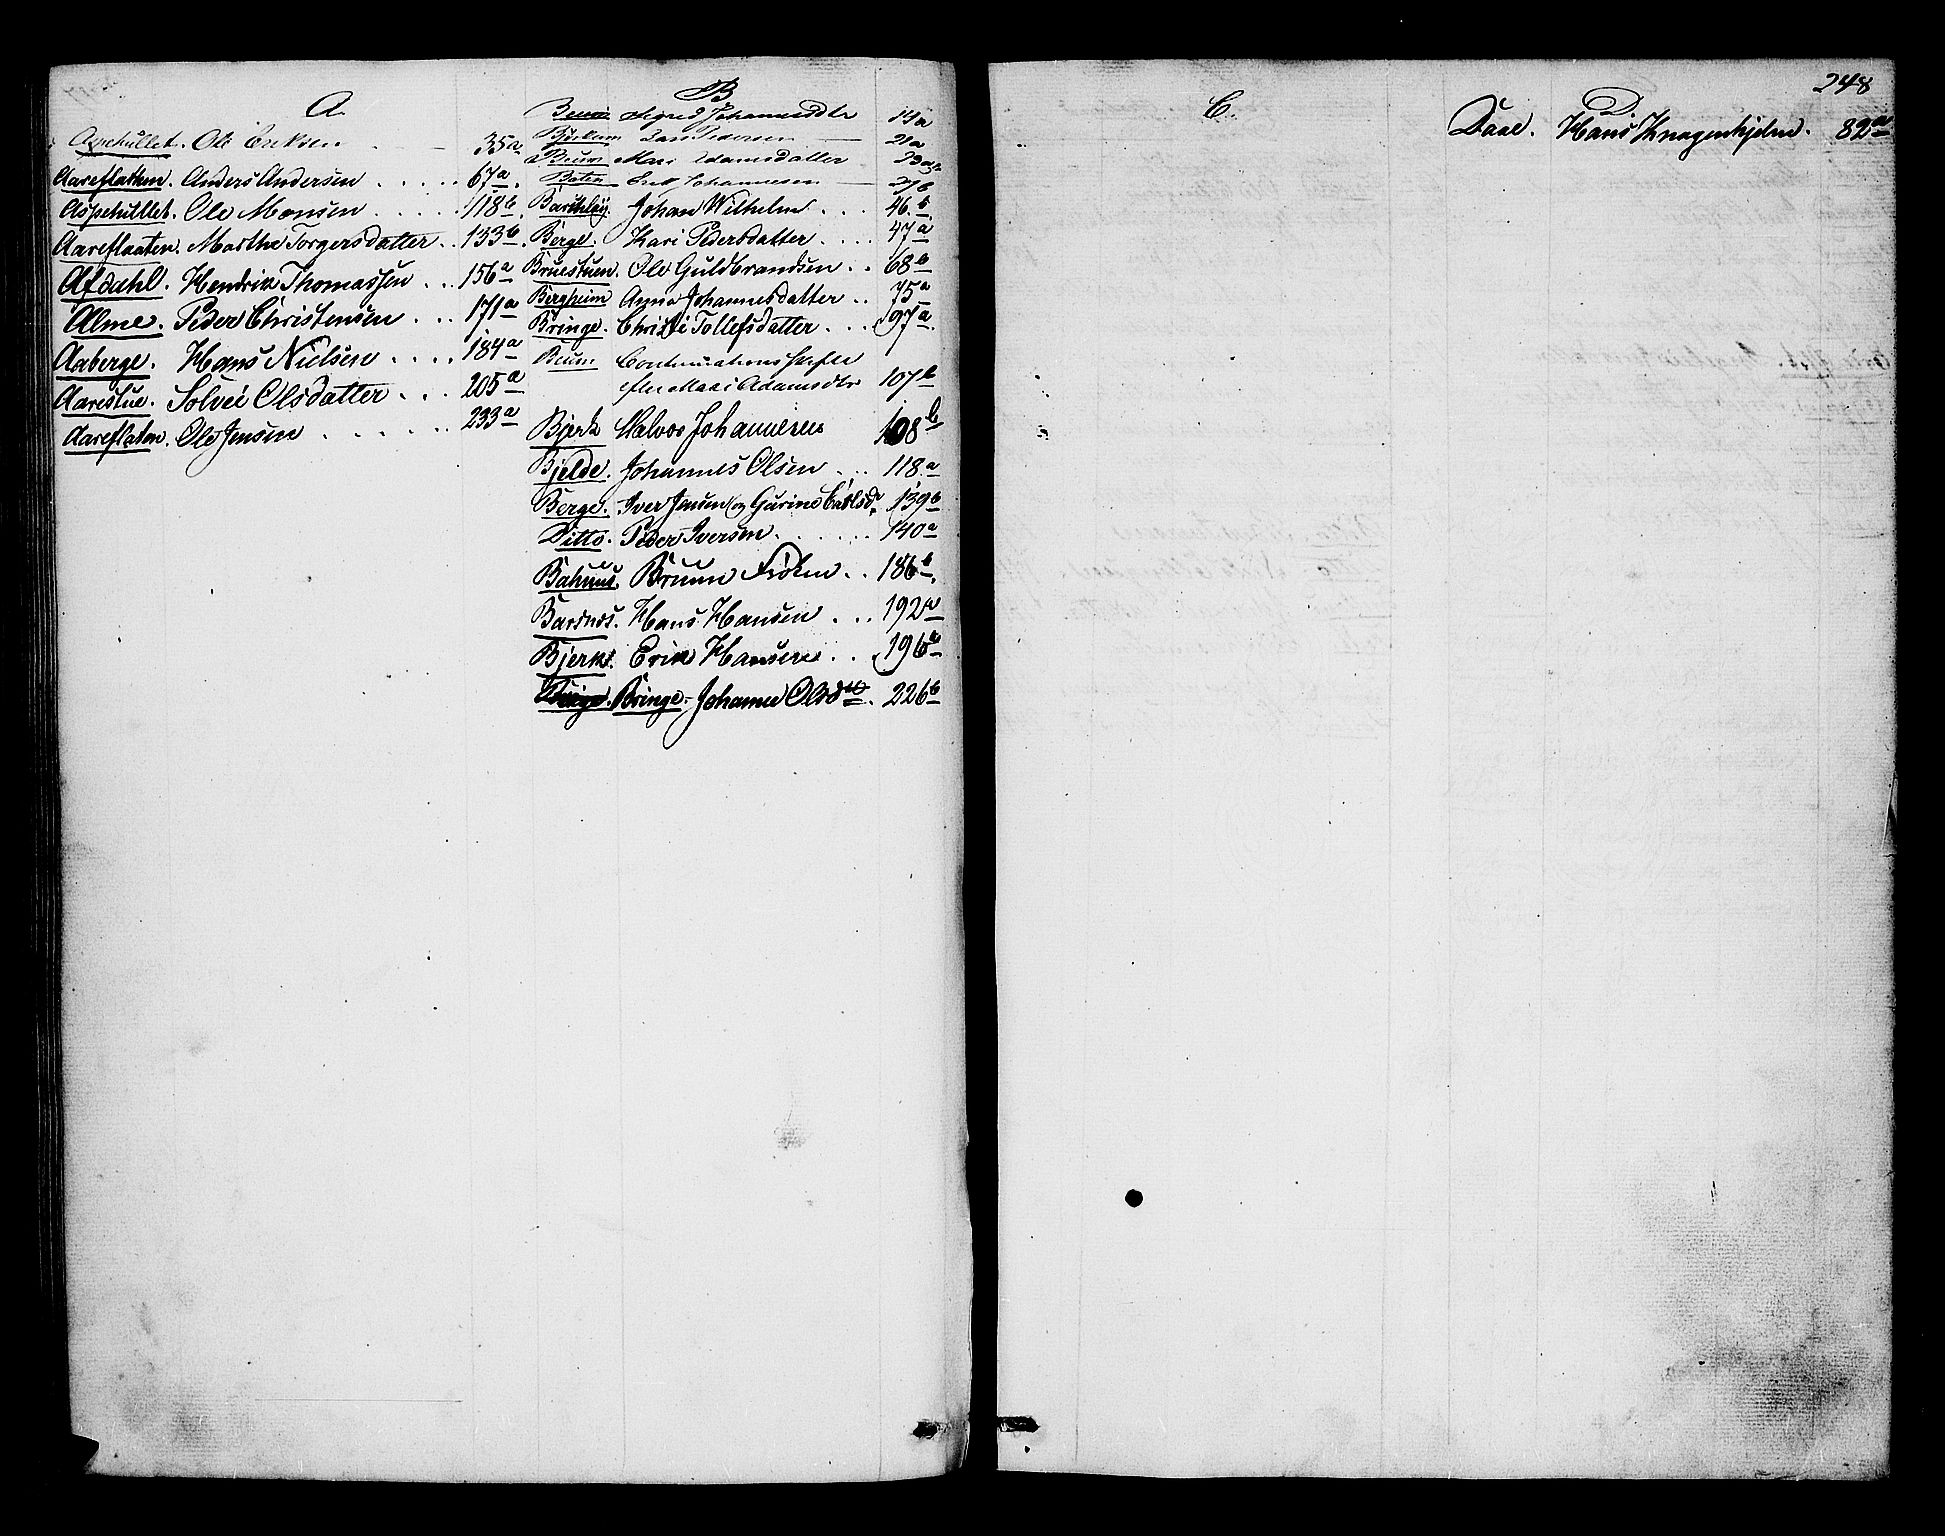 A
Aspehullet. Ole Eriksen 35a
Aareflathen. Anders Andersen 67a
Aspehullet. Ole Monsen 118b
Aareflaaten. Martha Torgersdatter 133b
Afdahl. Hendrik Thomassen 156a
Alme. Peder Christensen 171a
Aaberge. Hans Nielsen 184a
Aarestue. Solvei Olsdatter 205a
Aareflaten. Ole Jensen 233a
B
Beum Sigrid Johannesdtr 19a
Bjørkum Lars Pedersen 21a
Beum Mari Adamsdatter 23a
Baten Erik Johannesen 27b
Barthley. Johan Wilhelm 46.b
Berge. Kari Pedersdatter 47a
Bruestuen. Ole Guldbrandsen 68b
Bergheim Anna Johannesdatter 75a
Bringe. Christi Tollefsdatter 97a
Beum Continuations
efter Mari Adamsdtr 107b
Bjerk Halvor Johannesen 108b
Bjelde. Johannes Olsen 118a
Berge. Iver Jensen og Gurine Carlsdr 139b
Ditto. Peder Iversen 140a
Bahuus. Bruun Frøken 186b
Barsnæs. Hans Hansen 192a
Bjerk. Erik Hansen 196a
Bringe. Johanne Olsdtr 226b
C.
248
D
Daae. Hans Knagenhjelm. 82a